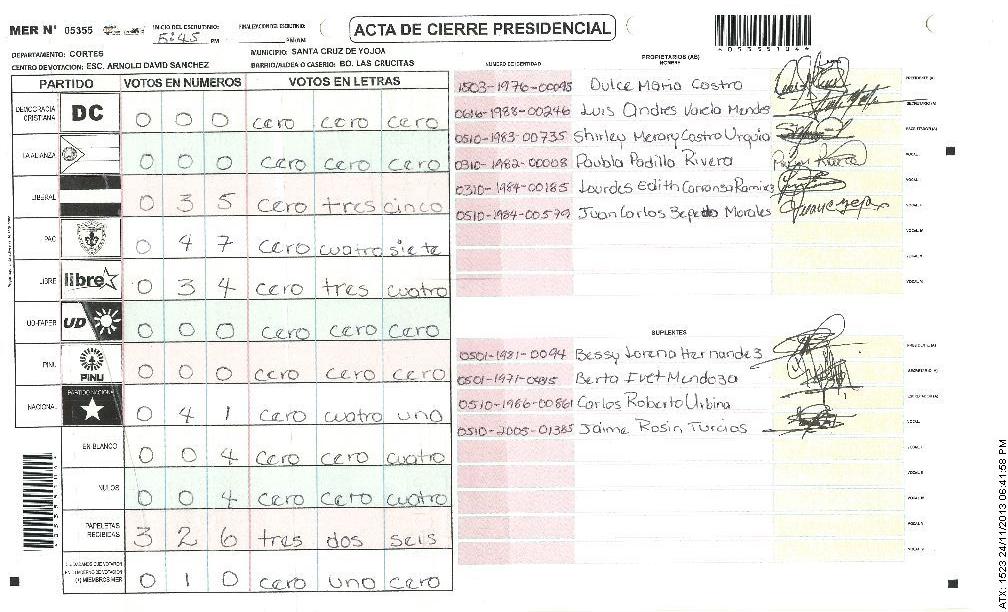 MER N° 05355
INICIO DEL ESCRUTINIO: 5:45 PM
FINALIZACION DEL ESCRUTINIO: PM/AM
ACTA DE CIERRE PRESIDENCIAL
DEPARTAMENTO: CORTES
MUNICIPIO: SANTA CRUZ DE YOJOA
CENTRO DE VOTACION: ESC. ARNOLD DAVID SANCHEZ
BARRIO/ALDEA O CASERIO: BO. LAS CRUCITAS
PARTIDO VOTOS EN NUMEROS VOTOS EN LETRAS
DEMOCRACIA CRISTIANA DC 0 0 0 cero cero cero
LA ALIANZA 0 0 0 cero cero cero
LIBERAL 0 3 5 cero tres cinco
PAC 0 4 7 cero cuatro siete
LIBRE libre 0 3 4 cero tres cuatro
UD-FAPER UD 0 0 0 cero cero cero
PINU PINU 0 0 0 cero cero cero
NACIONAL PARTIDO NACIONAL 0 4 1 cero cuatro uno
EN BLANCO 0 0 4 cero cero cuatro
NULOS 0 0 4 cero cero cuatro
PAPELETAS RECIBIDAS 3 2 6 tres dos seis
(+) MIEMBROS MER 0 1 0 cero uno cero
PROPIETARIOS (AS)
NUMERO DE IDENTIDAD NOMBRE
1503-1976-00095 Dulce Maria Castro
0616-1988-00246 Luis Andres Varela Mendes
0510-1983-00735 Shirley Merary Castro Urquia
0310-1982-00008 Paubla Padilla Rivera
0310-1984-00185 Lourdes Edith Carransa Ramirez
0510-1984-00579 Juan Carlos Morales
SUPLENTES
0501-1981-0094 Bessy Lorena Hernandez
0501-1971-0915 Berta Ivet Mendoza
0510-1986-00861 Carlos Roberto Urbina
0510-2005-01385 Jaime Rosin Turcios
ATX: 1523 24/11/2013 06:41:58 PM